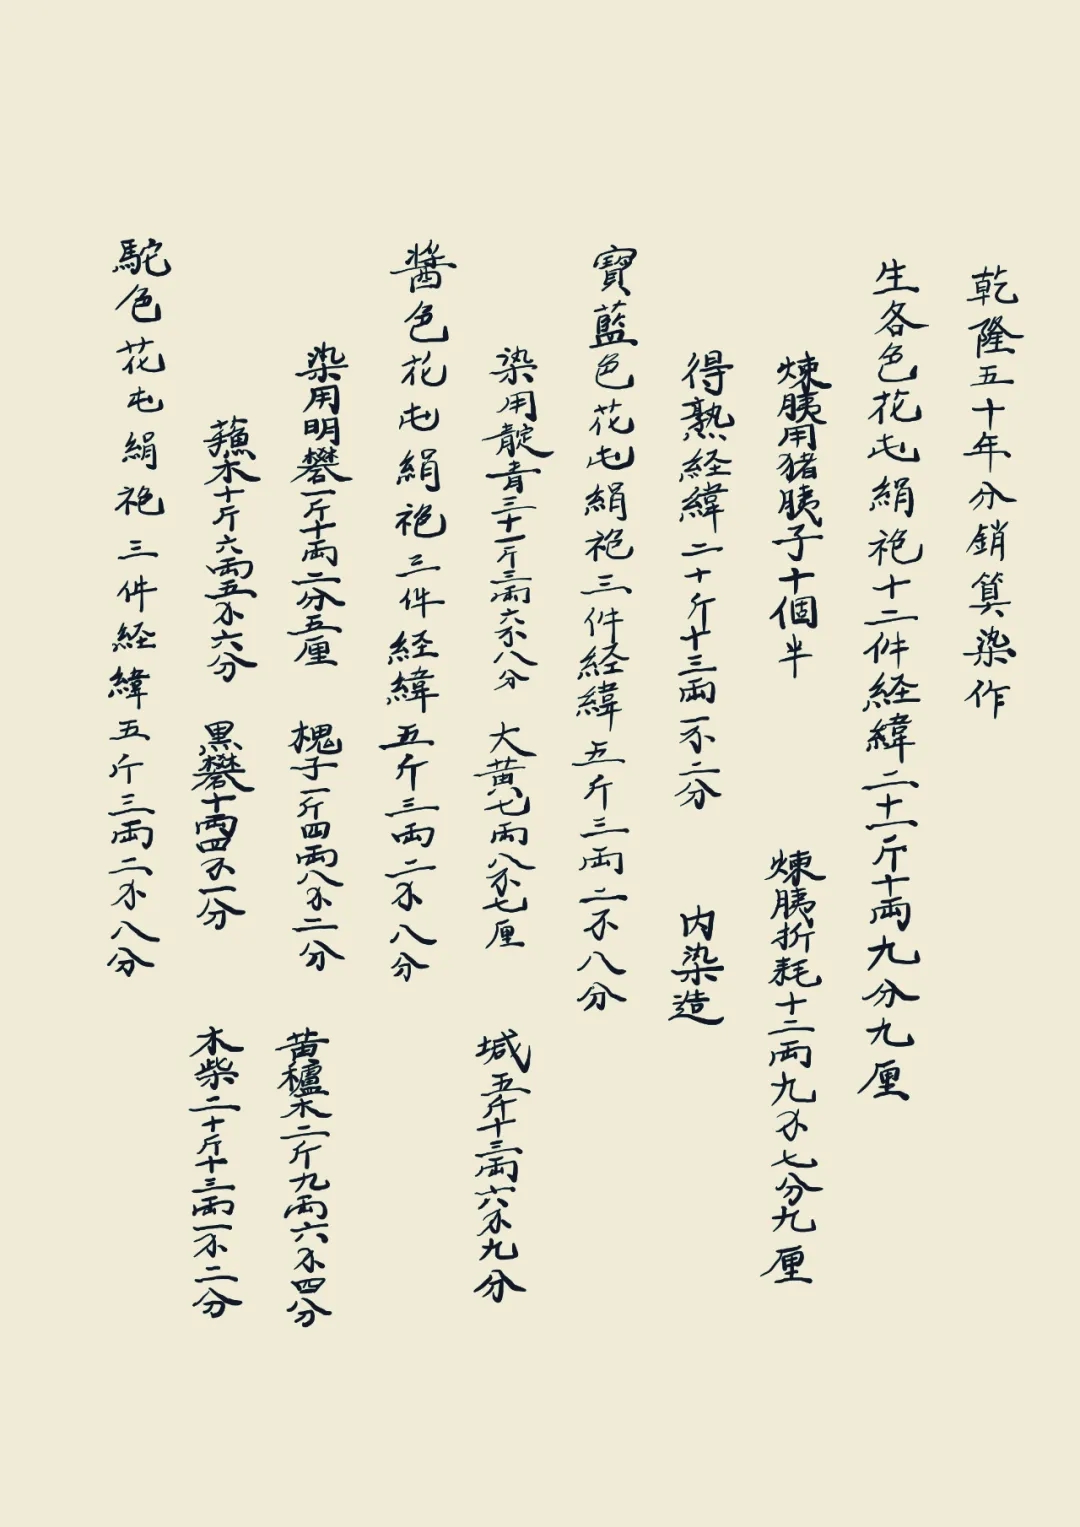 乾隆五十年分銷算染作
生各色花屯絹袍十二件経緯二十一斤十兩九分九厘
煉胰用猪胰子十個半 煉胰折耗十二兩九不七分九厘
得熟経緯二十斤十三兩一不二分 内染造
寶藍色花屯絹袍三件経緯五斤三兩二不八分
染用靛青三十一斤三兩六不八分 大黄七兩八不七厘 堿五斤十三兩六不九分
醬色花屯絹袍三件経緯五斤三兩二不八分
染用明礬一斤十兩二分五厘 槐子一斤四兩八不二分 黄櫨木二斤九兩六不四分
蘓木十斤六兩五不六分 黒礬十兩四不一分 木柴二十斤十三兩一不二分
駝色花屯絹袍三件経緯五斤三兩二不八分